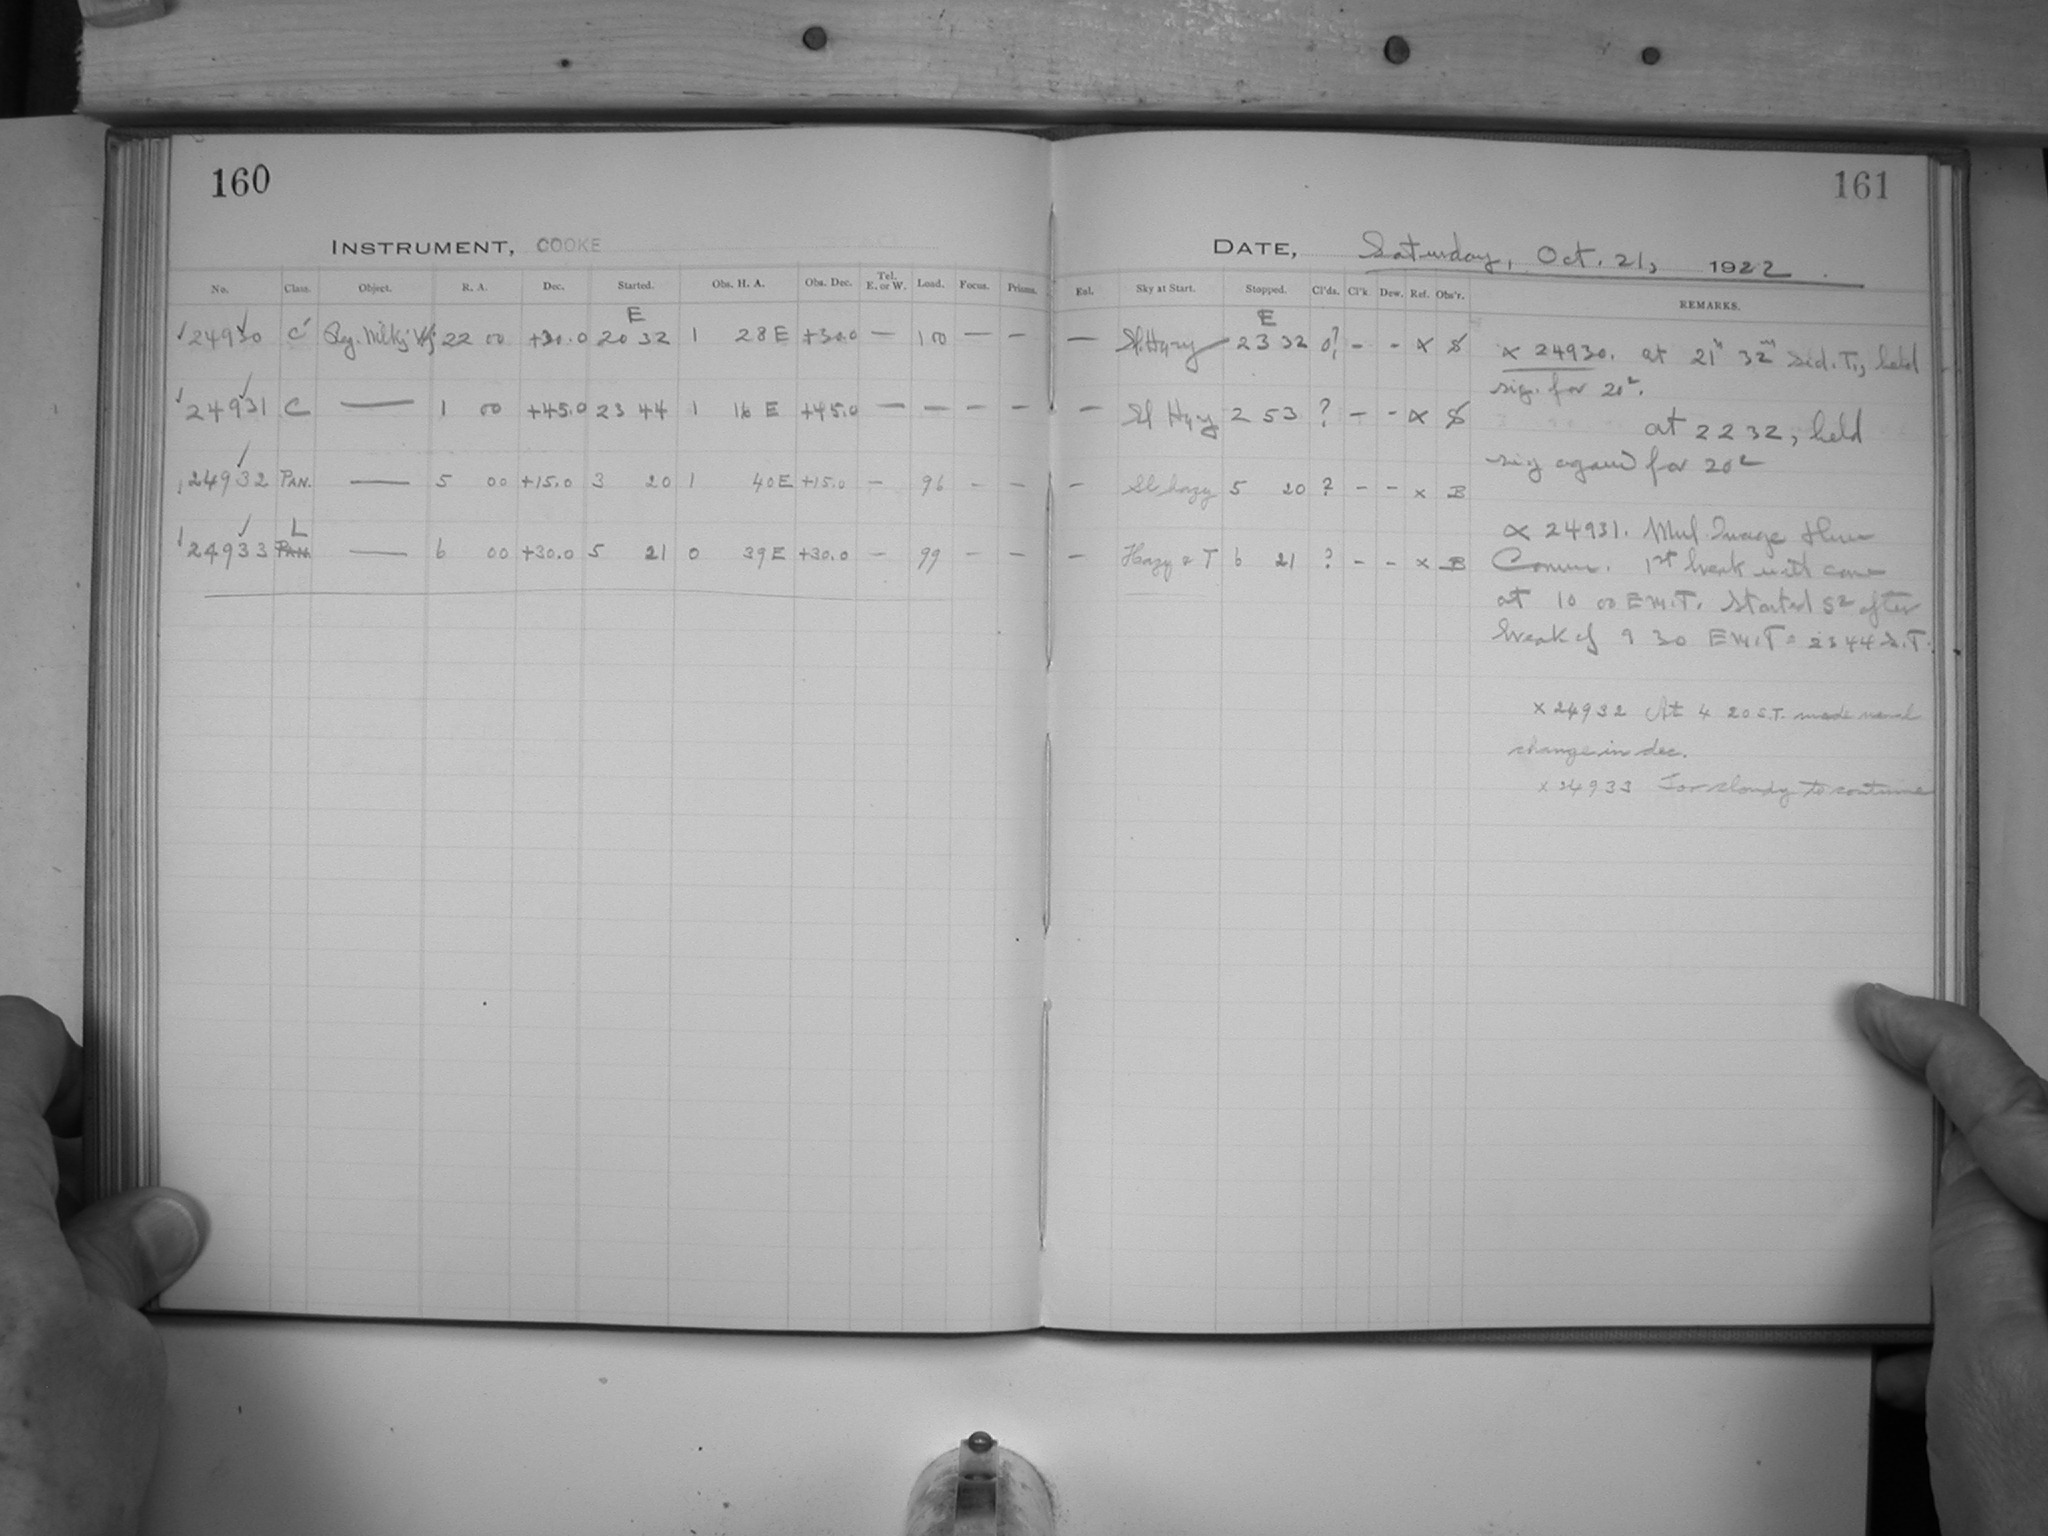 160
INSTRUMENT, COOKE
No. Class. Object. R. A. Dec. Started. Obs. H. A. Obs. Dec. Tel. E. or W. Load. Focus. Prisms.
E
24930 C Reg. Milky Wy 22 00 +30.0 20 32 1 28 E +30.0 — 100 — —
24931 C — 1 00 +45.0 23 44 1 16 E +45.0 — — — —
24932 PAN. — 5 00 +15.0 3 20 1 40 E +15.0 — 96 — —
L
24933 PAN. — 6 00 +30.0 5 21 0 39 E +30.0 — 99 — —
161
DATE, Saturday, Oct. 21, 1922.
Enl. Sky at Start. Stopped. Cl'ds. Cl'k. Dew. Ref. Obs'r. REMARKS.
E
— Sl. Hazy 23 32 0? - - x S
— Sl Hzy 2 53 ? - - x S
— Sl hazy 5 20 ? - - x B
— Hazy & T 6 21 ? - - x B
x 24930. at 21h 32m Sid. T., held
sig. for 20s.
at 22 32, held
sig again for 20s
x 24931. Mul Image
1st break with
at 10 00 E.M.T. Started 5s after
break of 9 30 E.M.T = 23 44 S.T.
x 24932 At 4 20 S.T. made usual
change in dec.
x 24933 Too cloudy to continue